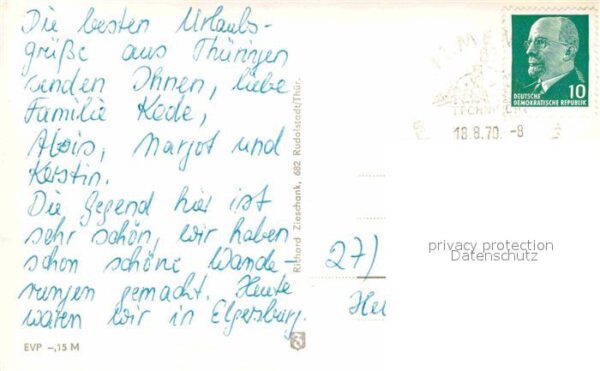 Die besten Urlaubs-
grüße aus Thüringen
senden Ihnen, liebe
Familie Kode,
Alois, Margot und
Kerstin.
Die Gegend hier ist
sehr schön, wir haben
schon schöne Wande-
rungen gemacht. Heute
waren wir in Elgersburg.
EVP -,15 M
Richard Zieschank, 682 Rudolstadt/Thür.
27)
DEUTSCHE
DEMOKRATISCHE REPUBLIK
10
18.8.70.-8
privacy protection
Datenschutz